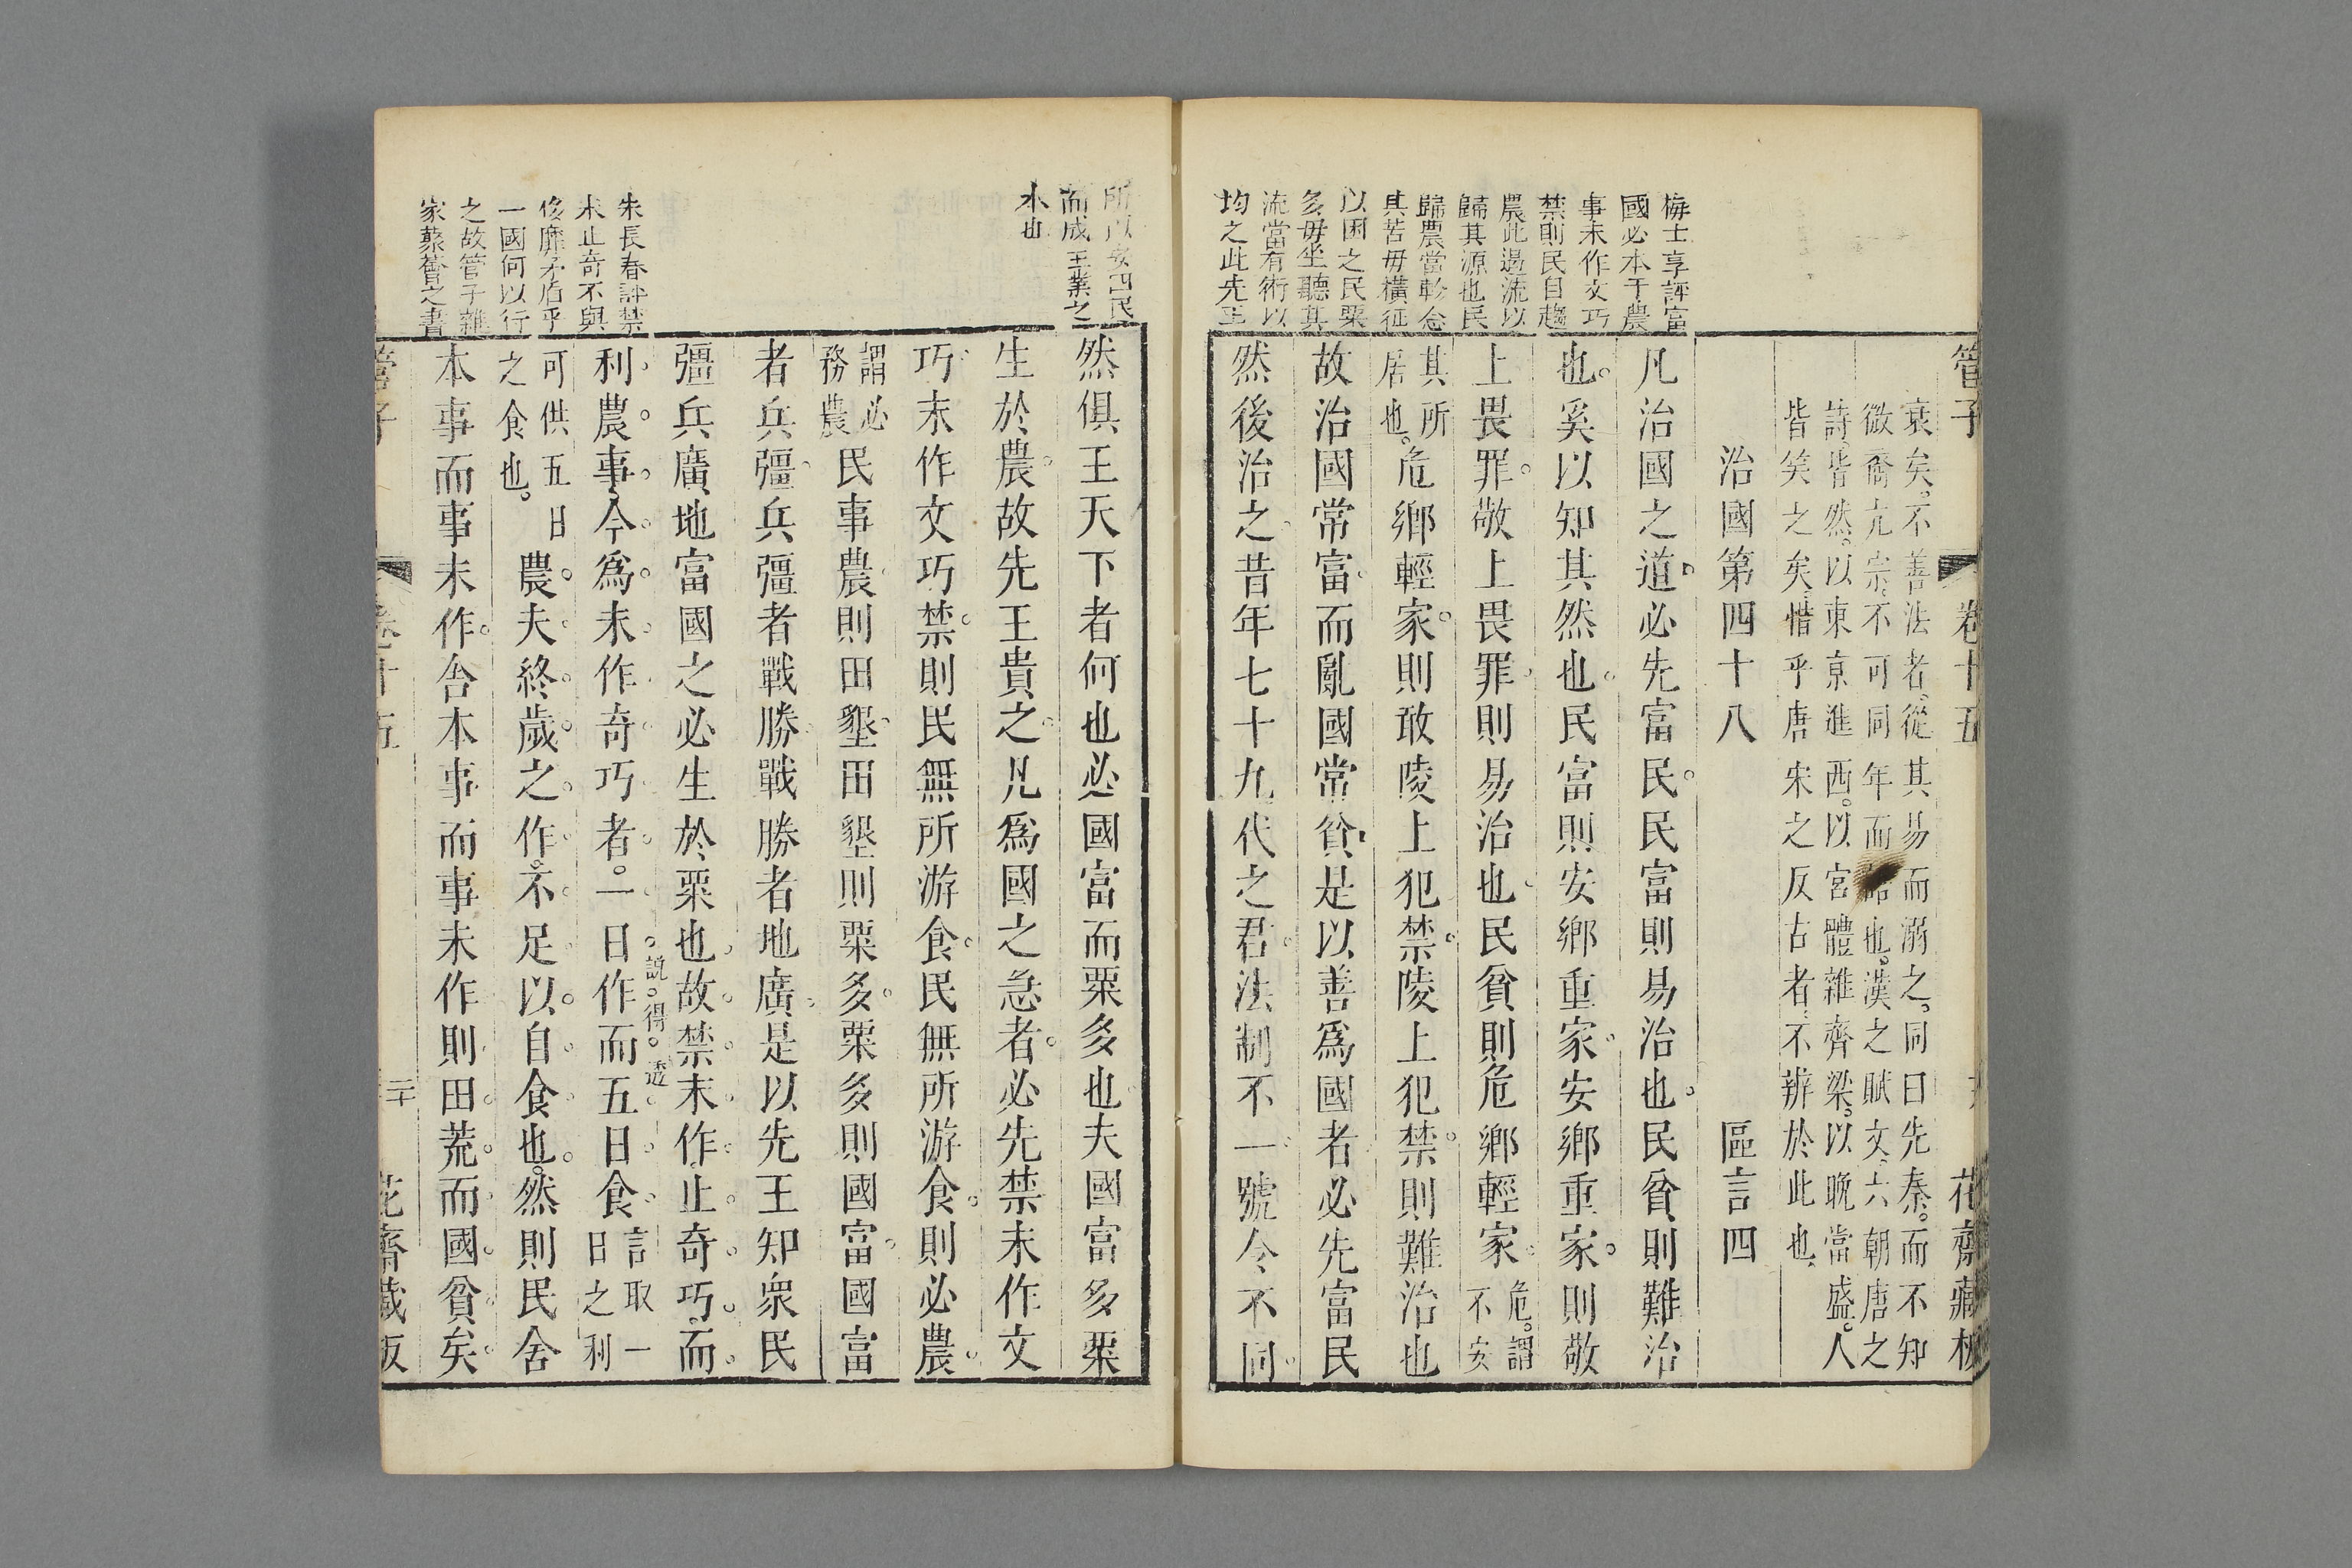 管子
卷十五
花齋藏板
衰矣。不善法者、從其易而溺之。同曰先秦。而不知
微喬充宗。不可同年而語也。漢之賦文、六朝唐之
詩皆然。以東京進西。以宮體雜齊梁。以晚當盛。人
皆笑之矣。惜乎唐宋之反古者、不辨於此也、
治國第四十八
區言四
凡治國之道必先富民民富則易治也民貧則難治
也。奚以知其然也民富則安鄉重家安鄉重家則敬
上畏罪敬上畏罪則易治也民貧則危鄉輕家危。謂不安
其所居也。危鄉輕家則敢陵上犯禁陵上犯禁則難治也
故治國常富而亂國常貧是以善為國者必先富民
然後治之昔年七十九代之君法制不一號令不同
梅士享評富
國必本于農
事末作文巧
禁則民自趨
農此遏流以
歸其源也民
歸農當軫念
其苦毋橫征
以困之民粟
多毋坐聽其
流當有術以
均之此先王
所以安四民
而成王業之
本也
然俱王天下者何也必國富而粟多也夫國富多粟
生於農故先王貴之凡為國之急者必先禁末作文
巧末作文巧禁則民無所游食民無所游食則必農
謂必務農民事農則田墾田墾則粟多粟多則國富國富
者兵彊兵彊者戰勝戰勝者地廣是以先王知眾民
彊兵廣地富國之必生於粟也故禁末作止奇巧而
說得透
利農事今為末作奇巧者。一日作而五日食言取一日之利
可供五日之食也。農夫終歲之作不足以自食也。然則民舍
本事而事末作舍本事而事末作則田荒而國貧矣
朱長春評禁
末止奇不與
侈靡矛盾乎
一國何以行
之故管子雜
家蘩薈之書
管子
卷十五
二十
花齋藏板